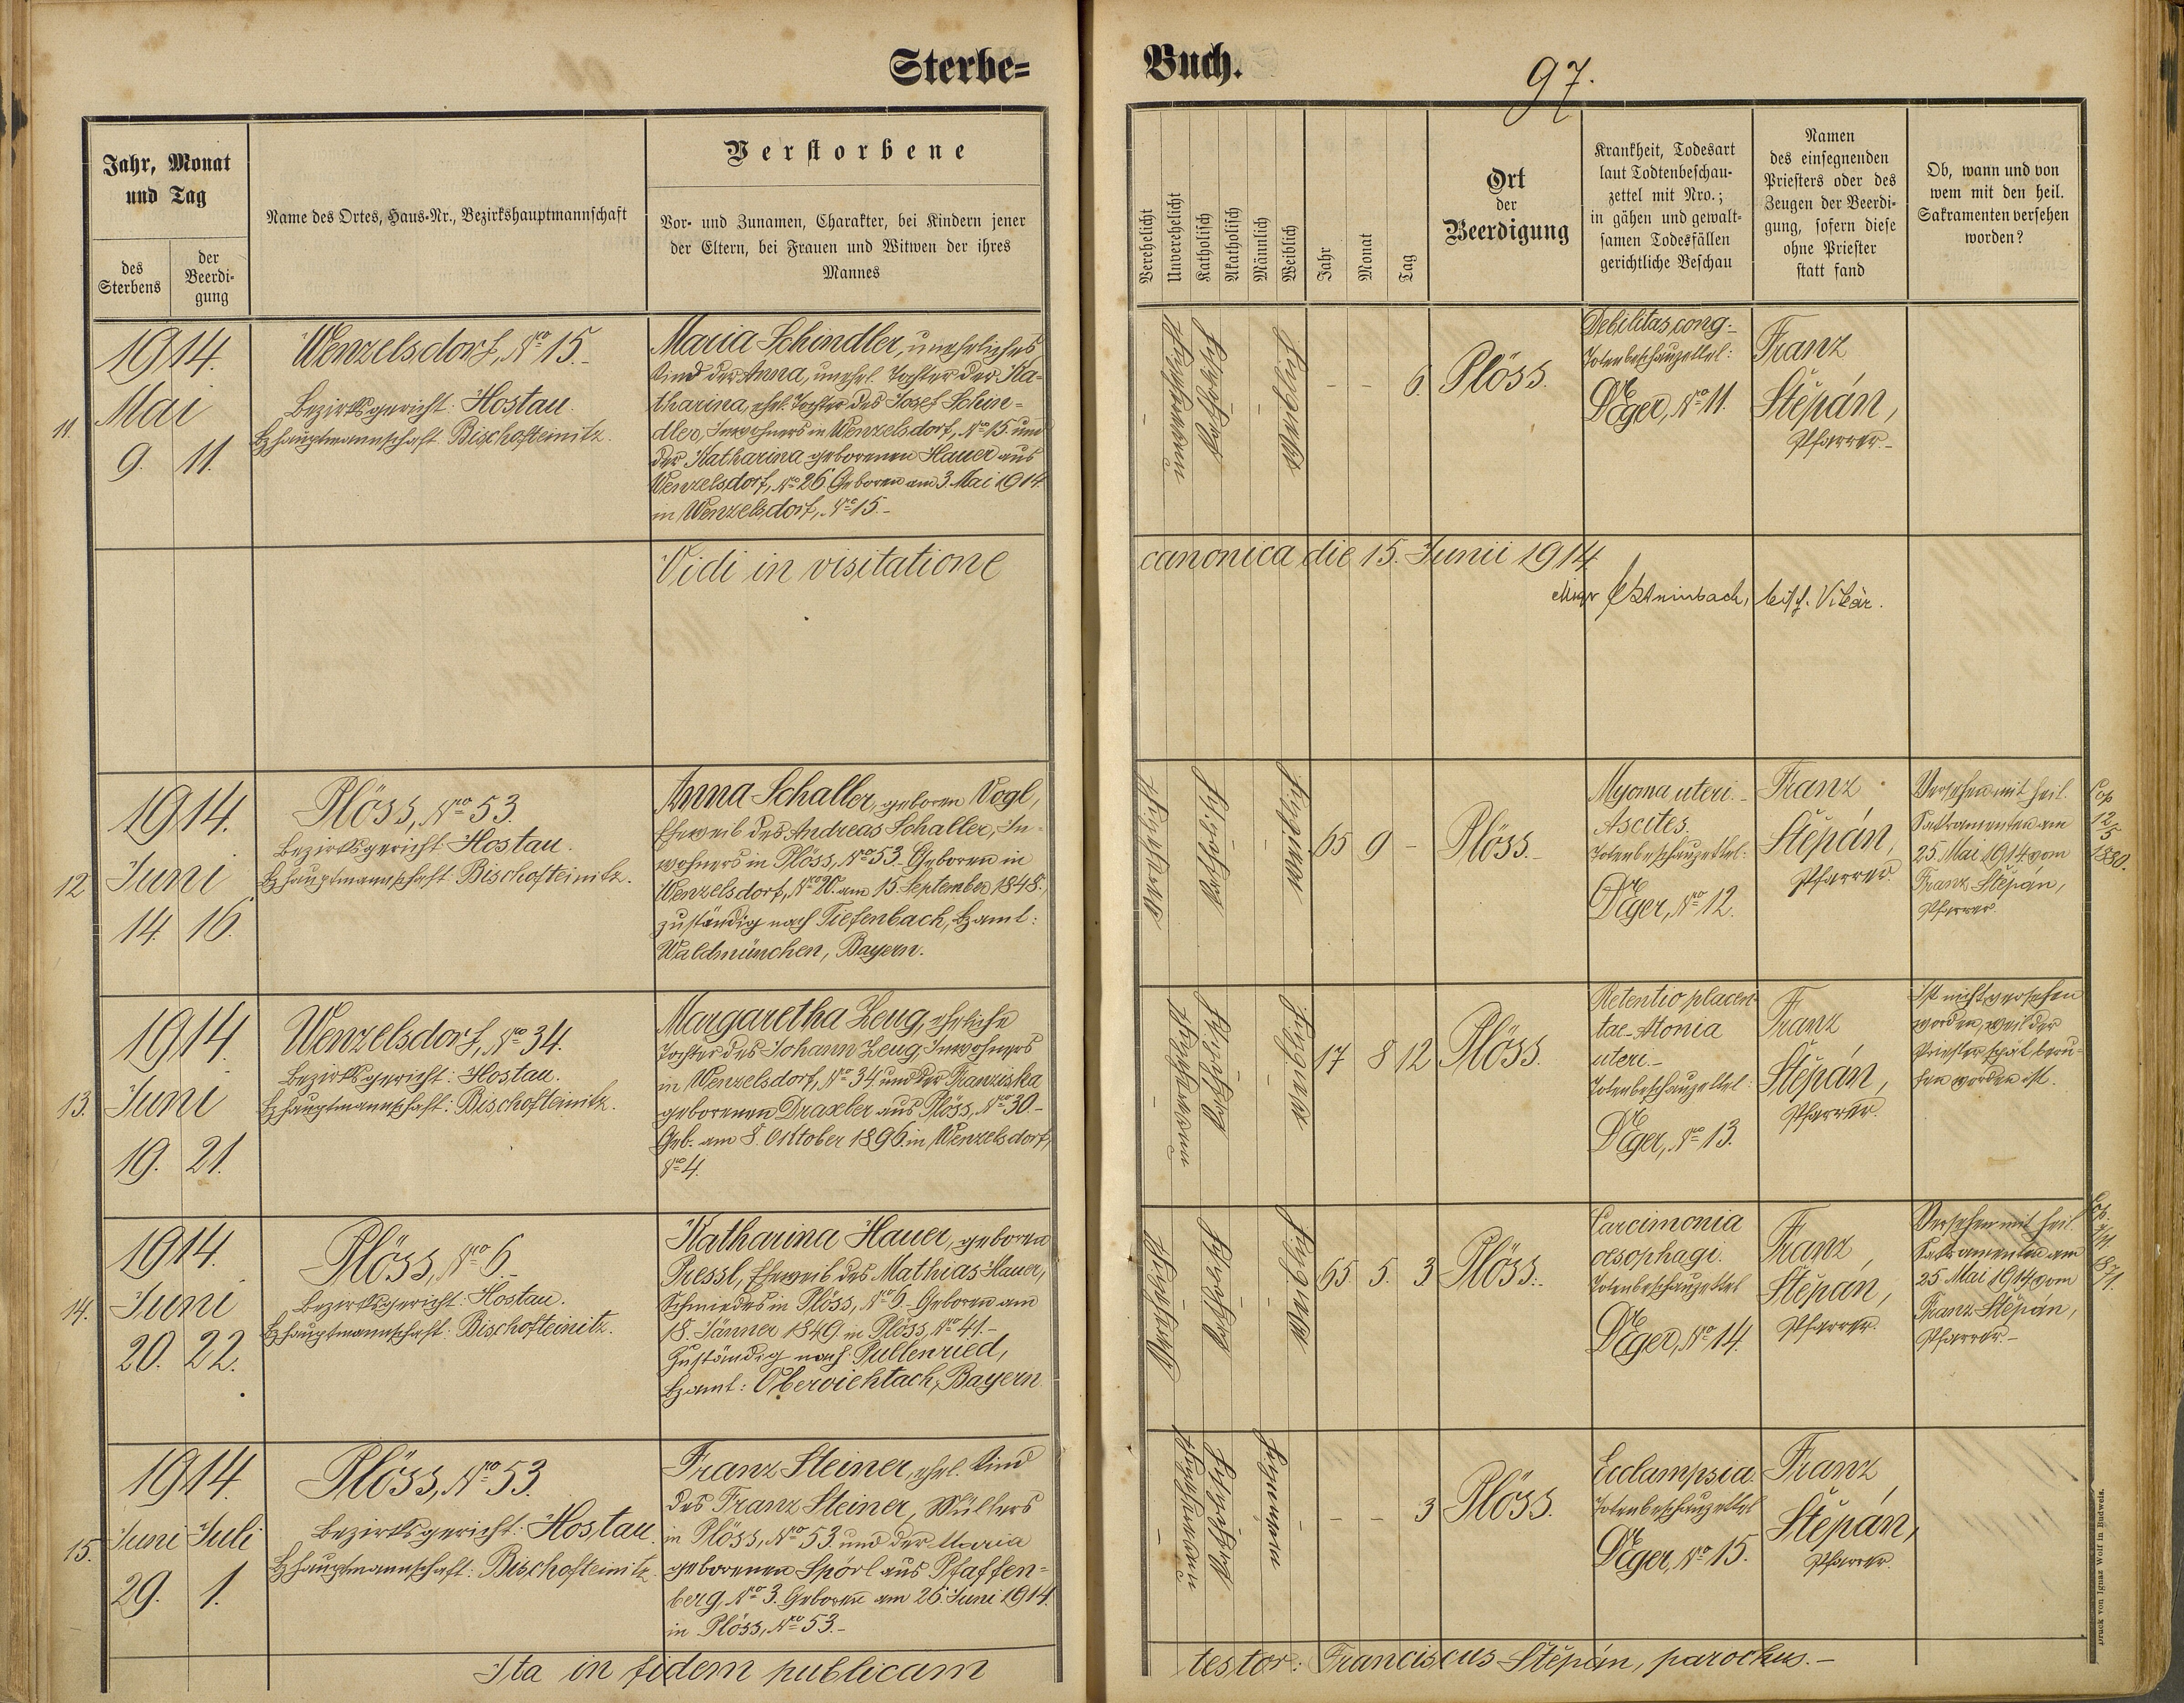 Sterbe=
Buch.
97.
Jahr, Monat
und Tag
des
Sterbens
der
Beerdi-
gung
Name des Ortes, Haus-Nr., Bezirkshauptmannschaft
Verstorbene
Vor- und Zunamen, Charakter, bei Kindern jener
der Eltern, bei Frauen und Witwen der ihres
Mannes
Verehelicht
Unverehelicht
Katholisch
Akatholisch
Männlich
Weiblich
Jahr
Monat
Tag
Ort
der
Beerdigung
Krankheit, Todesart
laut Todtenbeschau-
zettel mit Nro.;
in gähen und gewalt-
samen Todesfällen
gerichtliche Beschau
Namen
des einsegnenden
Priesters oder des
Zeugen der Beerdi-
gung, sofern diese
ohne Priester
statt fand
Ob, wann und von
wem mit den heil.
Sakramenten versehen
worden?
11.
1914.
Mai
9. 11.
Wenzelsdorf, No 15.-
Bezirksgericht: Hostau.
Bzhauptmannschaft: Bischofteinitz.
Maria Schindler, uneheliches
Kind der Anna, unehel. Tochter der Ka-
tharina, ehel. Tochter des Josef Schin-
dler, Inwohners in Wenzelsdorf, No 15. und
der Katharina geborenen Hauer aus
Wenzelsdorf, No 26. Geboren am 3. Mai 1914.
in Wenzelsdorf, No 15.-
-
Unverehelicht
Katholisch
-
Weiblich
- - 6.
Plöss.
Debilitas cong.-
Totenbeschauzettel:
Dr Eger, No 11.
Franz
Štěpán,
Pfarrer.-
Vidi in visitatione
canonica die 15. Junii 1914
bisch. Vikär.
12
1914.
Juni
14. 16.
Plöss, No 53.
Bezirksgericht: Hostau.
Bzhauptmannschaft: Bischofteinitz.
Anna Schaller, geboren Vogl,
Eheweib des Andreas Schaller, In-
wohners in Plöss, No 53.- Geboren in
Wenzelsdorf, No 20. am 15. September 1848.,
zuständig nach Tiefenbach, Bzamt:
Waldmünchen, Bayern.
Verehelicht
Katholisch
Weiblich
65 9 -
Plöss.-
Myoma uteri.-
Ascites.
Totenbeschauzettel:
Dr Eger, No 12.
Franz
Štěpán,
Pfarrer.
Versehen mit heil.
Sakramenten am
25. Mai 1914 vom
Franz Štěpán,
Pfarrer.
Cop
12/5
1880.
13.
1914.
Juni
19. 21.
Wenzelsdorf, No 34.
Bezirksgericht: Hostau.
Bzhauptmannschaft: Bischofteinitz.
Margaretha Zeug, eheliche
Tochter des Johann Zeug, Inwohners
in Wenzelsdorf, No 34. und der Franziska
geborenen Draxler aus Plöss, No 30.-
Geb. am 8. Oktober 1896. in Wenzelsdorf,
No 4.
-
Unverehelicht
Katholisch
-
Weiblich
17 8 12
Plöss.
Retentio placen-
tae. Atonia
uteri.-
Totenbeschauzettel:
Dr Eger, No 13.
Franz
Štěpán,
Pfarrer.
Ist nicht versehen
worden, weil der
Priester spät beru-
fen worden ist.
14.
1914.
Juni
20. 22.
Plöss, No 6.
Bezirksgericht: Hostau.
Bzhauptmannschaft: Bischofteinitz.
Katharina Hauer, geboren
Pressl, Eheweib des Mathias Hauer,
Schmiedes in Plöss, No 6.- Geboren am
18. Jänner 1849. in Plöss, No 41.-
Zuständig nach: Pullenried,
Bzamt: Oberviehtach, Bayern.
Verehelicht
Katholisch
-
Weiblich
65 5. 3
Plöss.-
Carcimonia
oesophagi.
Totenbeschauzettel
Dr Eger, No 14.
Franz
Štěpán,
Pfarrer.
Versehen mit heil.
Sakramenten am
25. Mai 1914 vom
Franz Štěpán,
Pfarrer.-
Cop.
871.
15.
1914.
Juni Juli
29. 1.
Plöss, No 53.
Bezirksgericht: Hostau.
Bzhauptmannschaft: Bischofteinitz.
Franz Steiner, ehel. Kind
des Franz Steiner, Müllers
in Plöss, No 53. und der Maria
geborenen Spörl aus Pfaffen-
berg, No 3. Geboren am 26. Juni 1914.
in Plöss, No 53.-
-
Unverehelicht
Katholisch
Männlich
-
- - 3
Plöss.
Ecclampsia.
Totenbeschauzettel
Dr Eger, No 15.
Franz
Štěpán,
Pfarrer.
Ita in fidem publicam
testor: Franciscus Štěpán, parochus.-
Druck von Ignaz Wolf in Budweis.